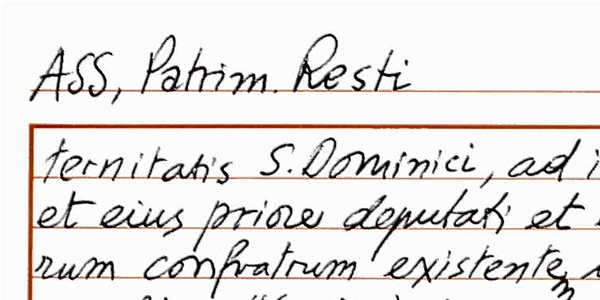 ASS, Patrim. Resti
ternitatis S. Dominici, ad
et eius priore deputati et
rum confratrum existentem